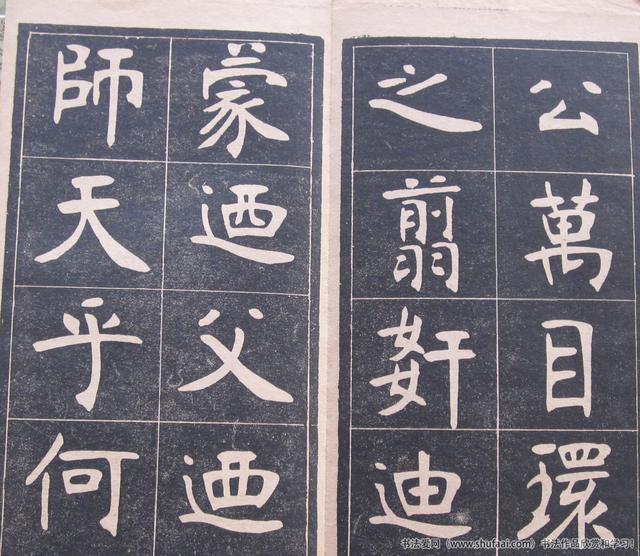 公萬目環
之翦奸迪
蒙迺父迺
師天乎何
书法爱网（www.shufaai.com）书法作品欣赏和学习！